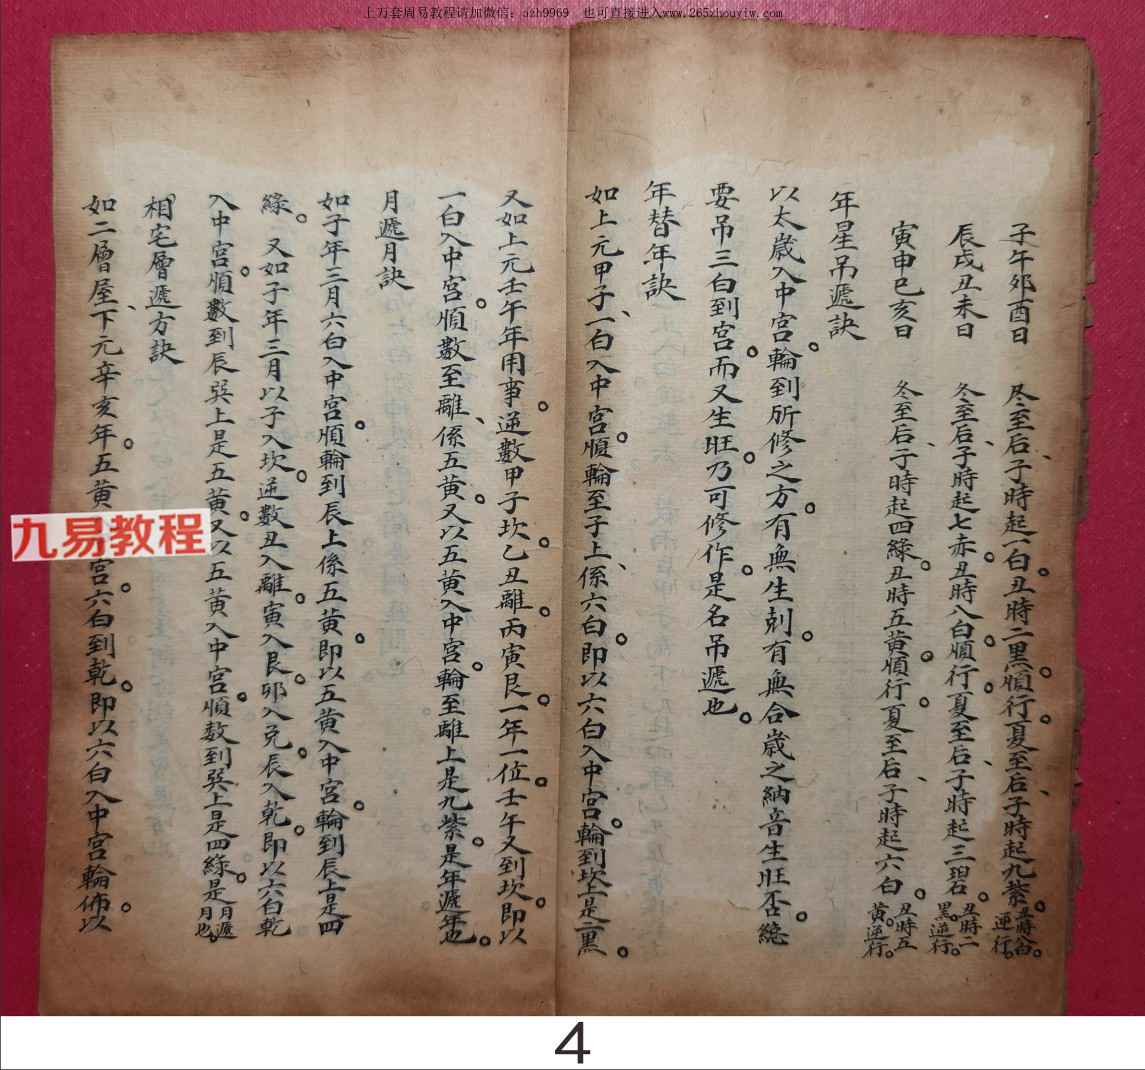 上万套周易教程请加微信：szh9969  也可直接进入www.265zhouyiw.com
子午夘酉日　冬至后、子時起一白。丑時二黑。順行。夏至后、子時起九紫。丑時八白。逆行。
辰戌丑未日　冬至后、子時起七赤。丑時八白。順行。夏至后、子時起三碧。丑時二黑。逆行。
寅申巳亥日　冬至后、子時起四綠。丑時五黄。順行。夏至后、子時起六白。丑時五黄。逆行。
年星吊遞訣
以太歳入中宮。輪到所修之方。有無生剋。有無合歳之納音生旺否。総
要吊三白到宮。而又生旺。乃可修作。是名吊遞也。
年替年訣
如上元甲子、一白入中宮。順輪至子上、係六白。即以六白入中宮。輪到坎上是二黑。
又如上元壬午年用事。逆數甲子坎。乙丑離。丙寅艮。一年一位。壬午又到坎。即以
一白入中宮。順數至離、係五黄。又以五黄入中宮。輪至離上是九紫。是年遞年也。
月遞月訣
如子年三月六白入中宮。順輪到辰上係五黄。即以五黄入中宮。輪到辰上是四
綠。又如子年三月以子入坎。逆數丑入離。寅入艮。夘入兑。辰入乾。即以六白乾
入中宮。順數到辰巽上是五黄。又以五黄入中宮。順数到巽上是四綠。是月遞月也。
相宅層遞方訣
如二層屋、下元辛亥年。五黄宮。六白到乾。即以六白入中宮輪佈。以
九易教程
4